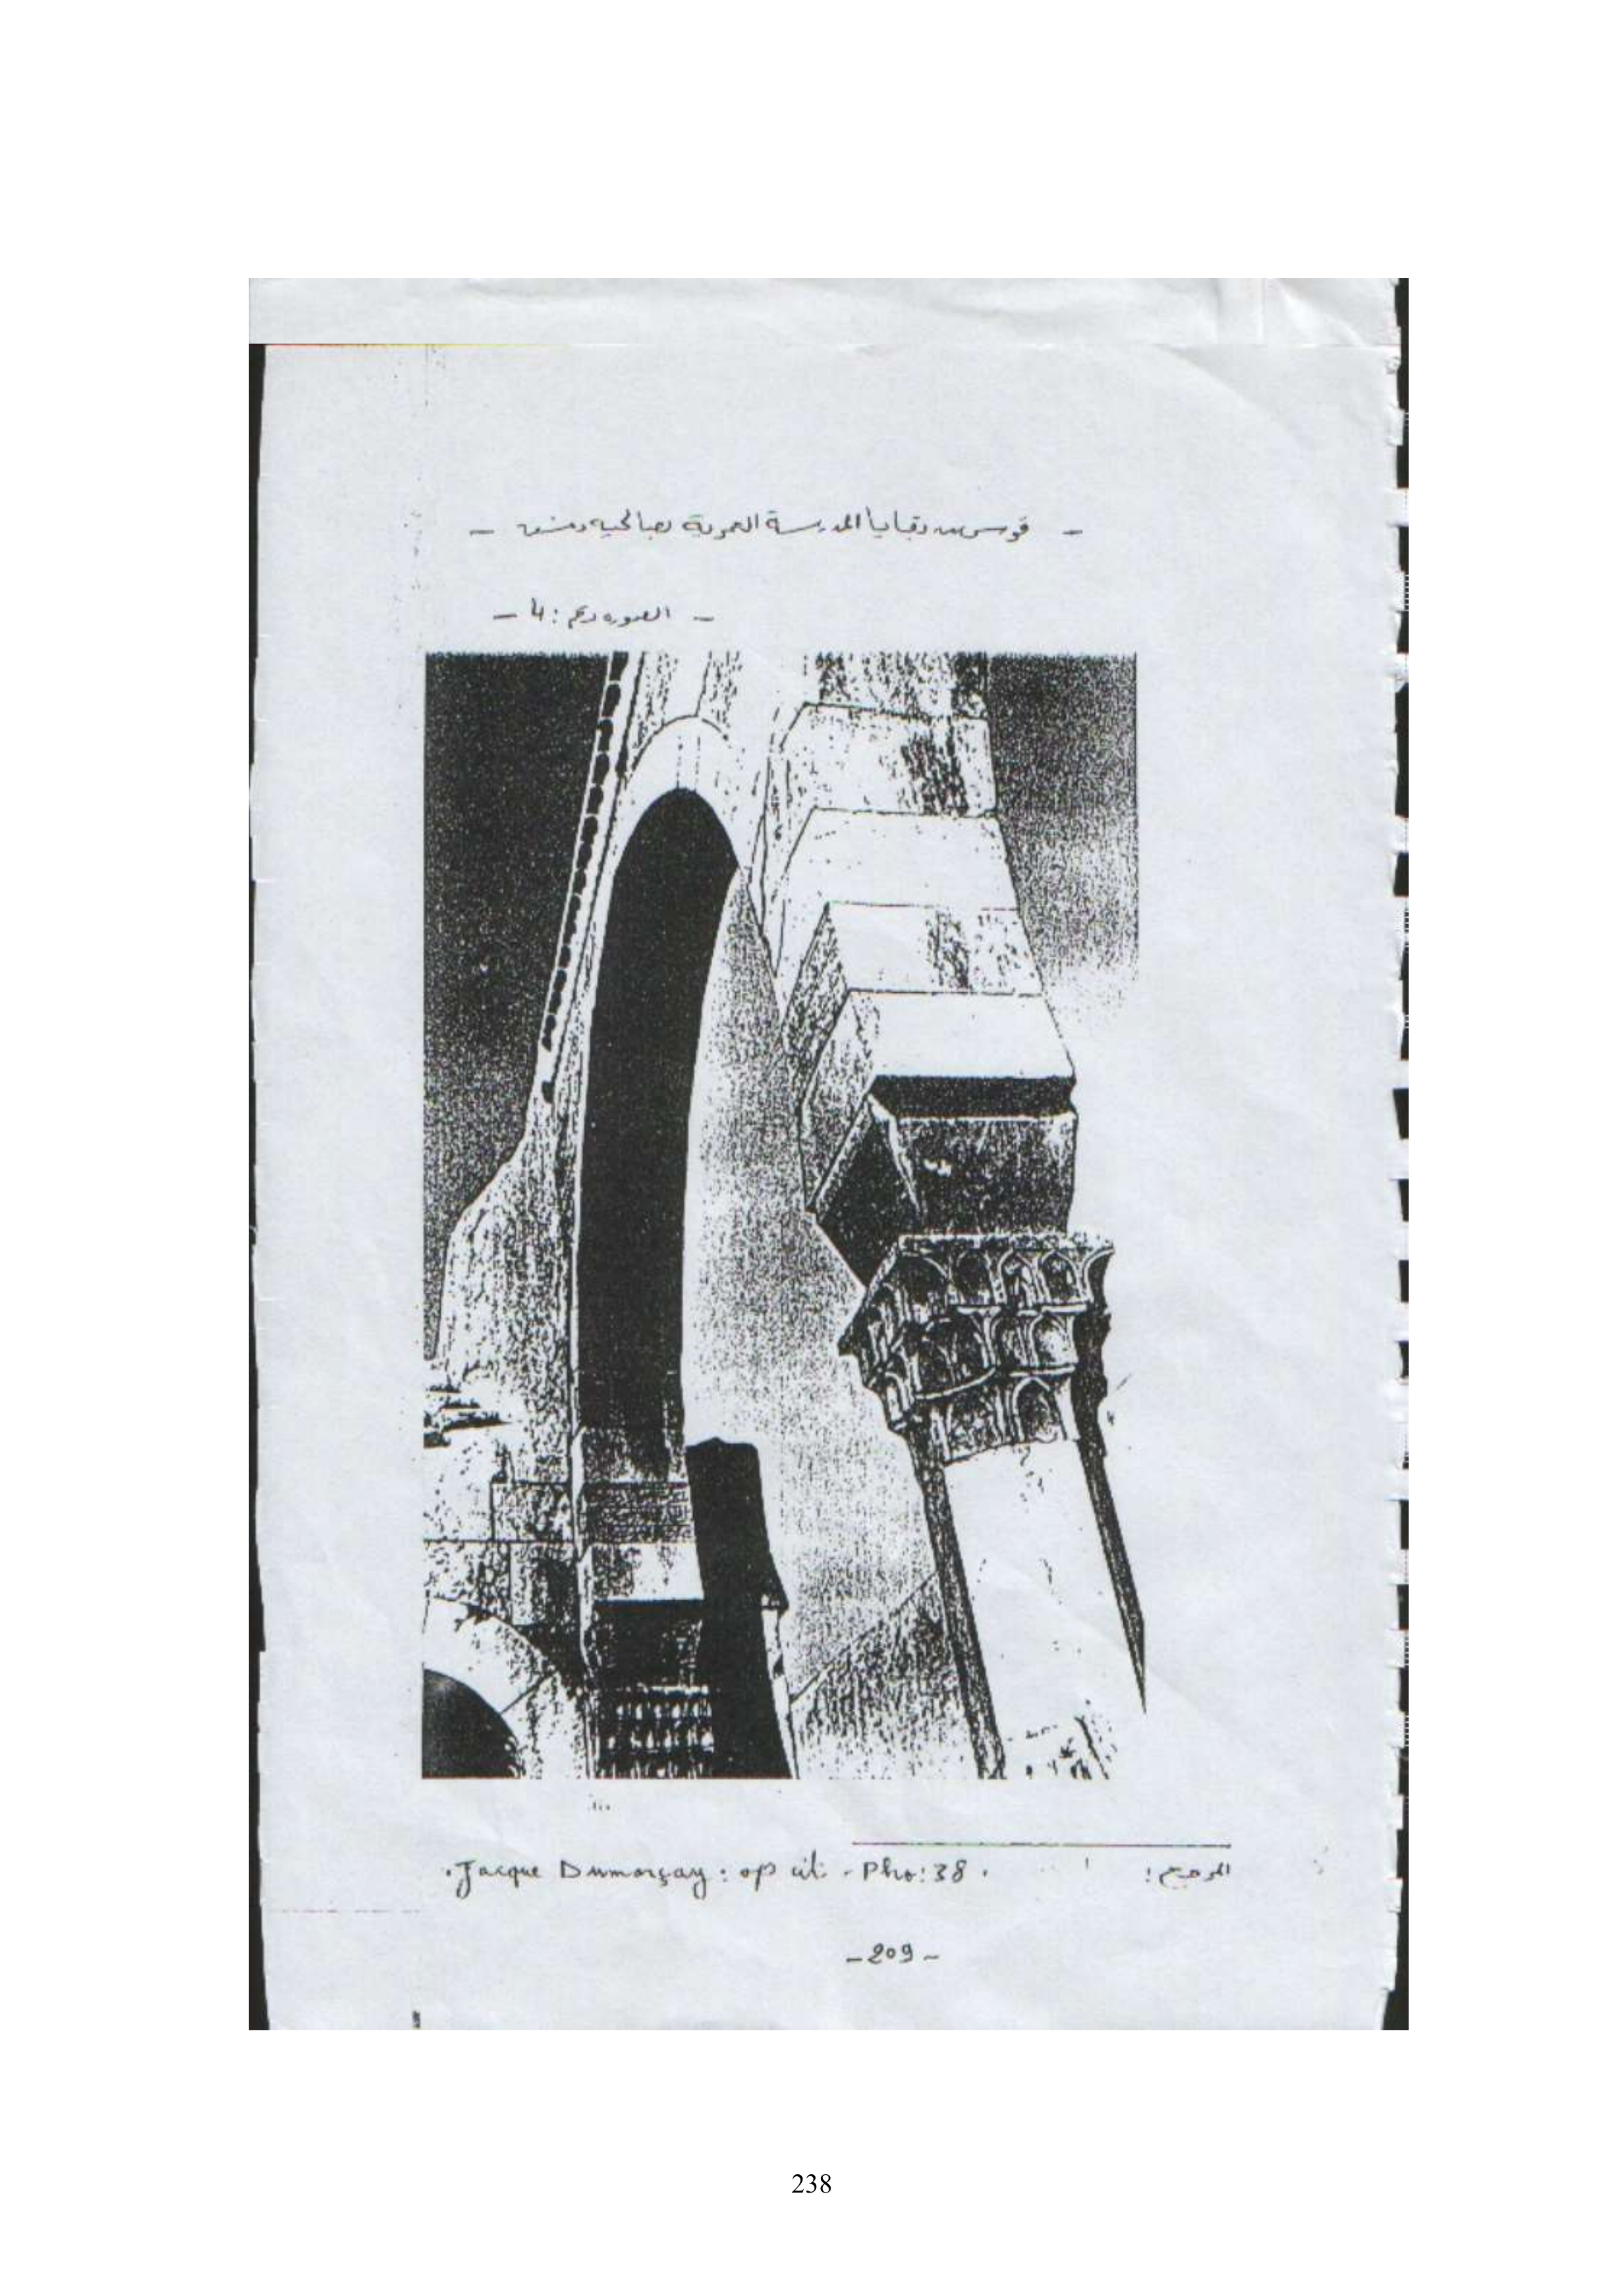 - قوس من بقايا المدرسة العمرية بصالحية دمشق -
- الصورة رقم : 4 -
المرجع : Jacque Dumarçay : op cit. - Pho : 38 .
- 209 -
238